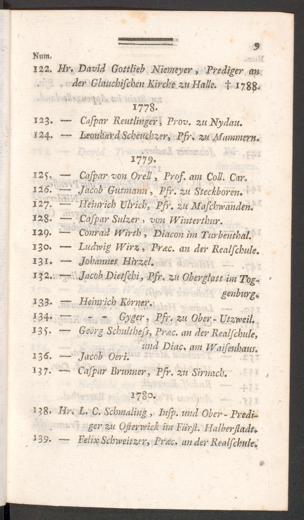 9
Num.
122. Hr. David Gottlieb Niemeyer, Prediger an
der Glauchischen Kirche zu Halle. † 1788.
1778.
123. — Caspar Reutlinger, Prov. zu Nydau.
124. — Leonhard Scheuchzer, Pfr. zu Mammern.
1779.
125. — Caspar von Orell, Prof. am Coll. Car.
126. — Jacob Gutmann, Pfr. zu Steckboren.
127. — Heinrich Ulrich, Pfr. zu Maschwanden.
128. — Caspar Sulzer, von Winterthur.
129. — Conrad Wirth, Diacon im Turbenthal.
130. — Ludwig Wirz, Præc. an der Realschule.
131. — Johannes Hirzel.
132. — Jacob Dietschi, Pfr. zu Oberglatt im Tog-
genburg.
133. — Heinrich Körner.
134. — - - Gyger, Pfr. zu Ober-Utzweil.
135. — Georg Schulthess, Præc. an der Realschule,
und Diac. am Waisenhaus.
136. — Jacob Oeri.
137. — Caspar Brunner, Pfr. zu Sirnach.
1780.
138. Hr. L. C. Schmaling, Insp. und Ober-Predi-
ger zu Osterwieck im Fürst. Halberstadt.
139. — Felix Schweitzer, Præc. an der Realschule.